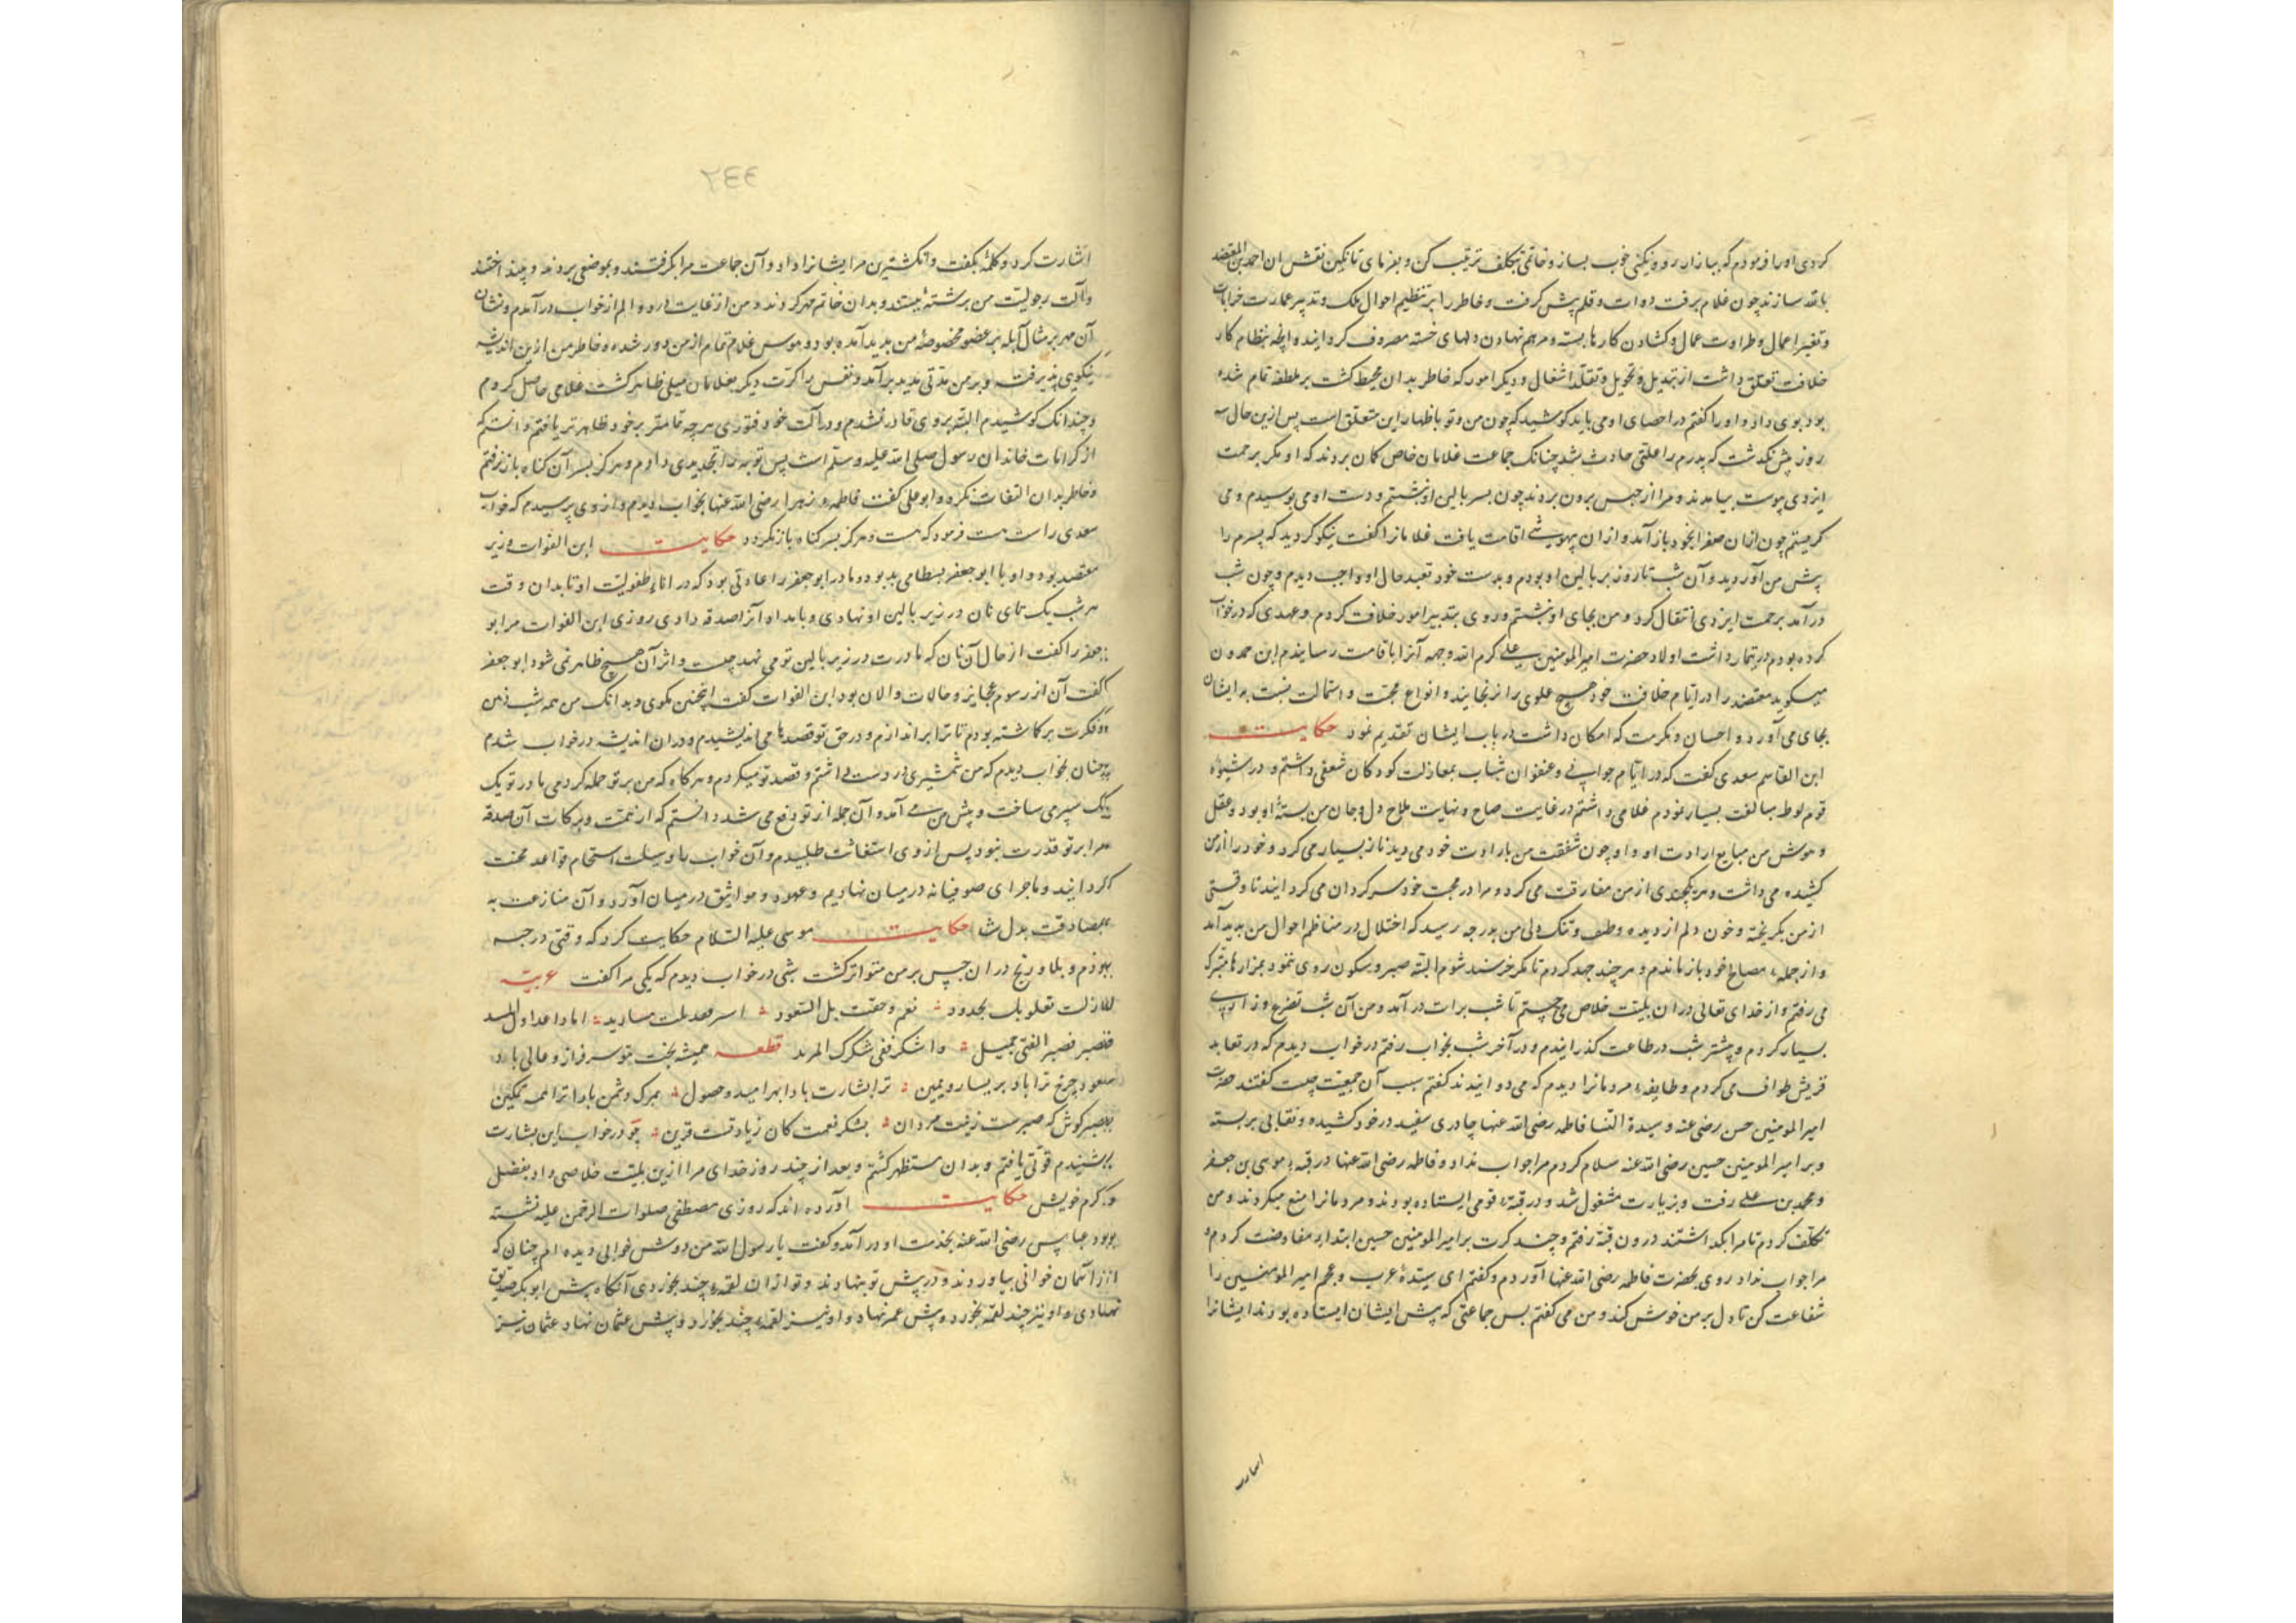 کردی او را فرمودم که ببازار رو و نکینی خوب بساز و خاتمی بتکلف ترتیب کن و بفرمای تا بنکین نقش ان احمد بن المعتضد
بالله سازند چون غلام برفت دوات و قلم پیش کرفت و خاطر را بر تنظیم احوال ملک و تدبیر عمارت خرابات
و تغیر اعمال و طراوت عمال و کشادن کارها بسته و مرهم نهادن دلهای خسته مصروف کردانید و انچه بنظام کار
خلافت تعلق داشت از تبدیل و تحویل و تقلد اشغال و دیکر امور که خاطر بدان محیط کشت بر ملطفه تمام شده
بود بوی داد و او را کفتم در احصای او می باید کوشید که چون من و تو باظهار این متعلق است پس ازین حال سه
روز بیش نکذشت که پدرم را علتی حادث شد چنانک جماعت غلامان خاص کمان بردند که او مکر برحمت
ایزدی پیوست بیامدند و مرا از حبس برون بردند چون بسر بالین او بنشستم و دست او می بوسیدم و می
کریستم چون ازان صفرا بخود باز آمد و ازان بیهوشی اقامت یافت غلامانرا کفت نیکو کردید که پسرم را
پیش من آوردید و آن شب تا روز بر بالین او بودم و بدست خود تعهد حال او واجب دیدم و چون شب
درآمد برحمت ایزدی انتقال کرد و من بجای او بنشستم و روی بتدبیر امور خلافت کردم و عهدی که در خواب
کرده بودم در تیمار داشت اولاد حضرت امیر المومنین علی کرم الله وجهه آنرا باقامت رسانیدم ابن حمدون
میکوید معتضد را در ایام خلافت خود هیچ علوی را نرنجانید و انواع محبت و استمالت نسبت به ایشان
بجای می آورد و احسان و مکرمت که امکان داشت در باب ایشان تقدیم نمود حکایت
ابن القاسم سعدی کفت که در ایام جوانی و عنفوان شباب بمعازلت کودکان شعفی داشتم و در شیوه
قوم لوط مبالغت بسیار نمودم غلامی داشتم در غایت صباح و نهایت ملاح دل و جان من بسته او بود و عقل
و هوش من مبایع ارادت او و او چون شفقت من بارادت خود می دید ناز بسیار می کرد و خود را از من
کشیده می داشت و هر یکچندی از من مفارقت می کرد و مرا در محبت خود سرکردان می کردانید تا وقتی
از من بکریخته و خون دلم از دیده و طلب و تنک دلی من بدرجه رسید که اختلال در مناظم احوال من بدید آمد
و از جمله مصالح خود باز ماندم و هر چند جهد کردم تا مکر خرسند شوم البته صبر و سکون روی ننمود بمزارها متبرکه
می رفتم و از خدای تعالی دران بلیت خلاص می جستم تا شب برات درآمد و من آن شب تضرع و زاری
بسیار کردم و بیشتر شب در طاعت کذرانیدم و در آخر شب بخواب رفتم در خواب دیدم که در مقابر
قریش طواف می کردم و طایفه مردمانرا دیدم که می دوانیدند کفتم سبب آن جمعیت چیست کفتند حضرت
امیر المومنین حسن رضی عنه و سیدة النسا فاطمه رضی الله عنها چادری سفید در خود کشیده و نقابی بر بسته
و برا میر المومنین حسین رضی الله عنه سلام کردم مرا جواب نداد و فاطمه رضی الله عنها در قبه موسی بن جعفر
و محمد بن علی رفت و بزیارت مشغول شد و در قبه قومی ایستاده بودند و مردمانرا منع میکردند و من
تکلف کردم تا مرا بکذاشتند درون قبه رفتم و چند کرت بر امیر المومنین حسین ابتدا بمفاوضت کردم و
مرا جواب نداد روی بحضرت فاطمه رضی الله عنها آوردم و کفتم ای سیده عرب و عجم امیر المومنین را
شفاعت کن تا دل بر من خوش کند و من می کفتم بس جماعتی که پیش ایشان ایستاده بودند ایشانرا
اشارت
٢٤٤
اشارت کرد و کلمه بکفت و انکشترین مر ایشانرا داد و آن جماعت مرا بکرفتند و بموضعی بردند و بینداختند
و آلت رجولیت من برشته ببستند و بدان خاتم مهر کردند و من از غایت درد و الم از خواب درآمدم و نشان
آن مهر بر مثال آبله بر عضو مخصوصه من بدید آمده بود و هوس غلام تمام از من دور شده و خاطر من ازین اندیشه
نیکوی پذیرفت و بر من مدتی مدید برآمد و نفس را کرت دیکر بغلامان میلی ظاهر کشت غلامی حاصل کردم
و چندانک کوشیدم البته بر وی قادر نشدم و در آلت خود فتوری هر چه تمامتر بر خود ظاهرتر یافتم دانستم که
از کرامات خاندان رسول صلی الله علیه و سلم است پس توبه را تجدیدی دادم و هرکز بسر آن کناه باز نرفتم
و خاطر بدان التفات نکرد و ابو علی کفت فاطمه زهرا رضی الله عنها بخواب دیدم و از وی پرسیدم که خواب
سعدی راست هست فرمود که هست و هرکز بسر کناه باز نکردد حکایت ابن الفوات وزیر
معتضد بود و او با ابو جعفر بسطامی بد بود و مادر ابو جعفر را عادتی بود که در اثناء طفولیت او تا بدان وقت
هر شب یک تای نان در زیر بالین او نهادی و بامداد آنرا صدقه دادی روزی ابن الفوات مر ابو
جعفر را کفت از حال آن نان که مادرت در زیر بالین تو می نهد چیست و اثر آن هیچ ظاهر نمی شود ابو جعفر
کفت آن از رسوم عجایز و حالات والان بود ابن الفوات کفت اینچنین مکوی و بدانک من همه شب ذهن
و فکرت بر کماشته بودم تا ترا براندازم و در حق تو قصدها می اندیشیدم و دران اندیشه در خواب شدم
چنان بخواب دیدم که من شمشیری در دست داشتم و قصد تو میکردم و هر کاه که من بر تو حمله کردمی مادر تو یک
یک سپر می ساخت و پیش من می آمد و آن حمله از تو دفع می شد دانستم که از نیت و برکات آن صدقه
مرا بر تو قدرت نبود پس از وی استغاثت طلبیدم و آن خواب ما وسیلت استحکام قواعد محبت
کردانید و ماجرای صوفیانه در میان نهادیم و عهود و مواثیق در میان آورد و آن منازعت به
مصادقت بدل شد حکایت موسی علیه السلام حکایت کرد که وقتی در حبسه
بودم و بلا و رنج دران حبس بر من متواتر کشت شبی در خواب دیدم که یکی مرا کفت عربیه
لازلت تعلو بک بجدود نعم وحفت بل السعود
فنصبر فصبر الفتی جمیل واشکر ففی شکرک المزید قطعه همیشه بخت بتو سرفراز و عالی باد
سعود چرخ ترا باد بر یسار و یمین ترا بشارت بادا بهر امید و حصول بمرک دشمن بادا ترا همه تمکین
بصبر کوش که صبرست زینت مردان بشکر نعمت کان زیادتست قرین چو در خواب این بشارت
بشنیدم قوتی یافتم و بدان مستظهر کشتم و بعد از چند روز خدای مرا ازین بلیت خلاصی داد بفضل
و کرم خویش حکایت آورده اند که روزی مصطفی صلوات الرحمن علیه نشسته
بود عباس رضی الله عنه بخدمت او درآمد و کفت یا رسول الله من دوش خوابی دیده ام چنان که
از آسمان خوانی بیاوردند و در پیش تو بنهادند و تو ازان لقمه چند بخوردی آنکاه پیش ابو بکر صدیق
نهادی و او نیز چند لقمه بخورد و پیش عمر نهاد و او نیز لقمه چند بخورد و پیش عثمان نهاد عثمان نیز